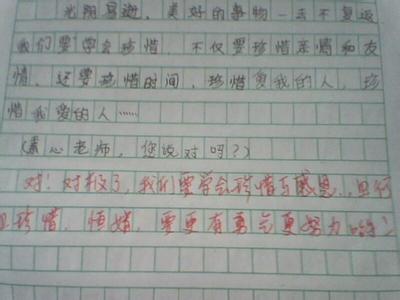 光阴易逝,美好的事物一去不复返
我们要学会珍惜,不仅要珍惜亲情和友
情,还要珍惜时间,珍惜爱我的人,珍
惜我爱的人……
(素心老师,您说对吗?)
对!对极了,我们要学会珍惜与感恩…且行
且珍惜,恒婧,要更有勇气更努力哟!